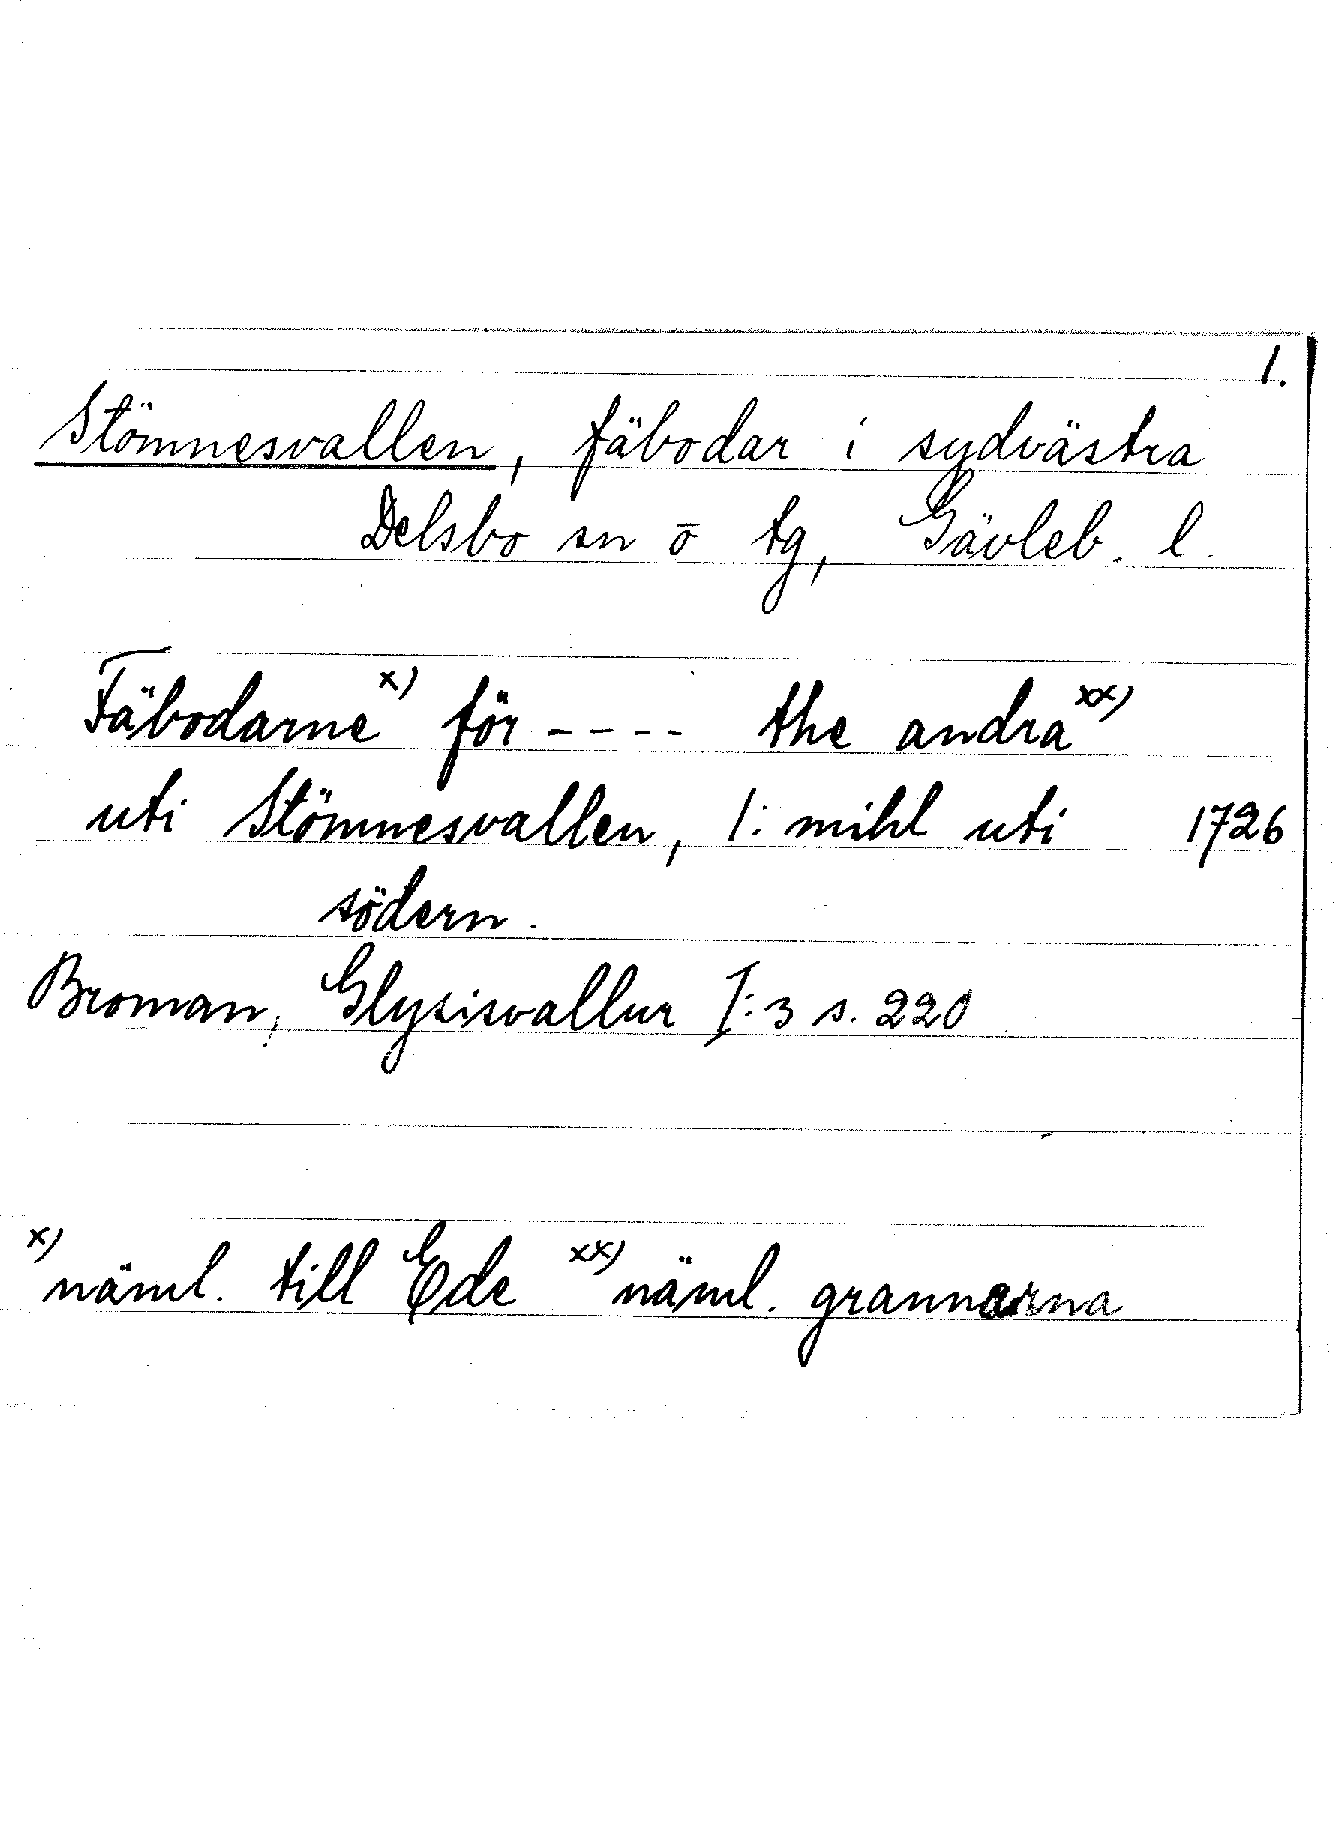 1.
Stömnesvallen, fäbodar i sydvästra
Delsbo sn o tg, Gävleb. l.
Fäbodarne x) för ---- the andra xx)
uti Stömnesvallen, 1: mihl uti 1726
södern.
Broman, Glysisvallur I:3 s. 220
x) näml. till Ede xx) näml. grannarna